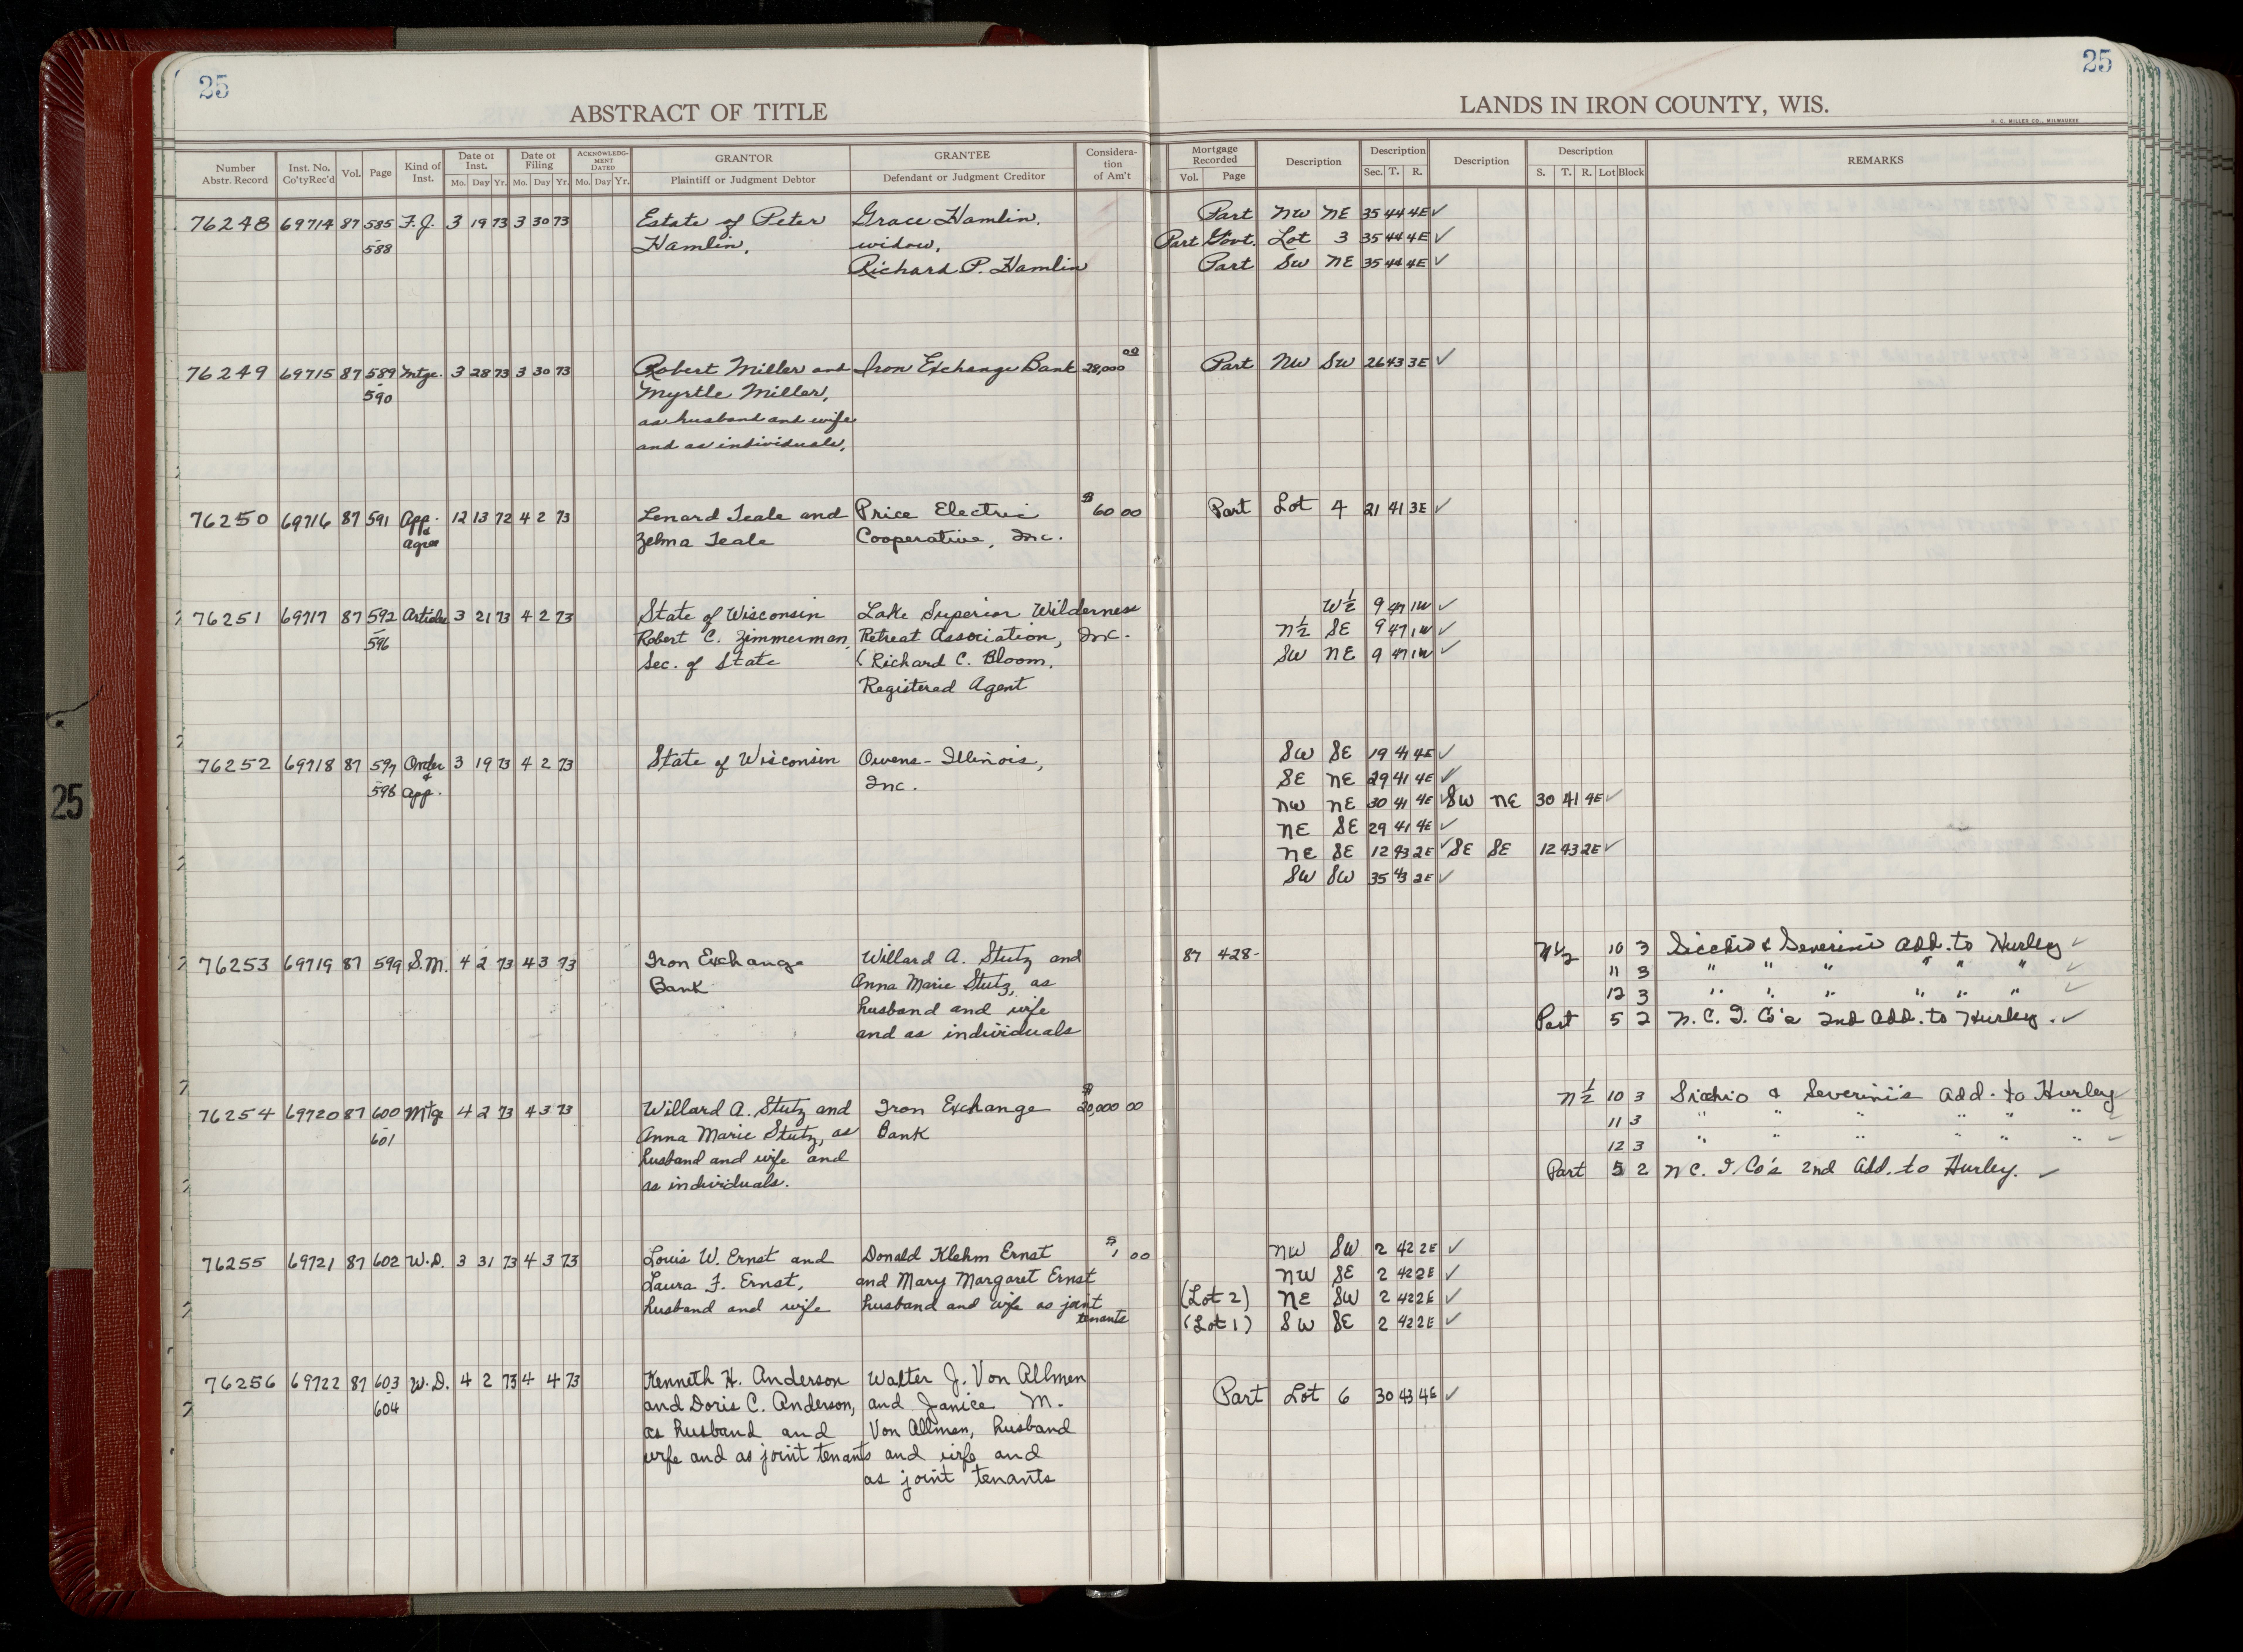 25
25
ABSTRACT OF TITLE
LANDS IN IRON COUNTY, WIS.
H. C. MILLER CO., MILWAUKEE
Number Abstr. Record Inst. No. Co'tyRec'd Vol. Page Kind of Inst. Date of Inst. Mo. Day Yr. Date of Filing Mo. Day Yr. ACKNOWLEDGMENT DATED Mo. Day Yr. GRANTOR Plaintiff or Judgment Debtor GRANTEE Defendant or Judgment Creditor Consideration of Am't
Mortgage Recorded Vol. Page Description Description Sec. T. R. Description Description S. T. R. Lot Block REMARKS
76248 69714 87 585 F.J. 3 19 73 3 30 73 Estate of Peter Grace Hamlin, Part NW NE 35 44 4E ✓
- 588 Hamlin, widow, Part Govt. Lot 3 35 44 4E ✓
Richard P. Hamlin Part SW NE 35 44 4E ✓
76249 69715 87 589 Mtge. 3 28 73 3 30 73 Robert Miller and Iron Exchange Bank 28,000 00 Part NW SW 26 43 3E ✓
- 590 Myrtle Miller,
as husband and wife
and as individuals,
76250 69716 87 591 App. 12 13 72 4 2 73 Lenard Teale and Price Electric $ 60 00 Part Lot 4 21 41 3E ✓
& Agree Zelma Teale Cooperative, Inc.
76251 69717 87 592 Articles 3 21 73 4 2 73 State of Wisconsin Lake Superior Wilderness W½ 9 47 1W ✓
- 596 Robert C. Zimmerman, Retreat Association, Inc. N½ SE 9 47 1W ✓
Sec. of State (Richard C. Bloom, SW NE 9 47 1W ✓
Registered Agent
76252 69718 87 597 Order 3 19 73 4 2 73 State of Wisconsin Owens-Illinois, SW SE 19 41 4E ✓
- 598 & App. Inc. SE NE 29 41 4E ✓
NW NE 30 41 4E ✓ SW NE 30 41 4E ✓
NE SE 29 41 4E ✓
NE SE 12 43 2E ✓ SE SE 12 43 2E ✓
SW SW 35 43 2E ✓
76253 69719 87 599 S.M. 4 2 73 4 3 73 Iron Exchange Willard A. Stutz and 87 428- N½ 10 3 Sicchio & Severini's Add. to Hurley ✓
Bank Anna Marie Stutz, as 11 3 " " " " " " ✓
husband and wife 12 3 " " " " " " ✓
and as individuals Part 5 2 N. C. I. Co's 2nd Add. to Hurley. ✓
76254 69720 87 600 Mtge 4 2 73 4 3 73 Willard A. Stutz and Iron Exchange $ 20,000 00 N½ 10 3 Sicchio & Severini's Add. to Hurley ✓
- 601 Anna Marie Stutz, as Bank 11 3 " " " " " " ✓
husband and wife and 12 3 " " " " " " ✓
as individuals. Part 5 2 N C. I. Co's 2nd Add. to Hurley. ✓
76255 69721 87 602 W.D. 3 31 73 4 3 73 Louis W. Ernst and Donald Klehm Ernst $ 1 00 NW SW 2 42 2E ✓
Laura F. Ernst, and Mary Margaret Ernst NW SE 2 42 2E ✓
husband and wife husband and wife as joint (Lot 2) NE SW 2 42 2E ✓
tenants (Lot 1) SW SE 2 42 2E ✓
76256 69722 87 603 W.D. 4 2 73 4 4 73 Kenneth H. Anderson Walter J. Von Allmen Part Lot 6 30 43 4E ✓
- 604 and Doris C. Anderson, and Janice M.
as husband and Von Allmen, husband
wife and as joint tenants and wife and
as joint tenants
25